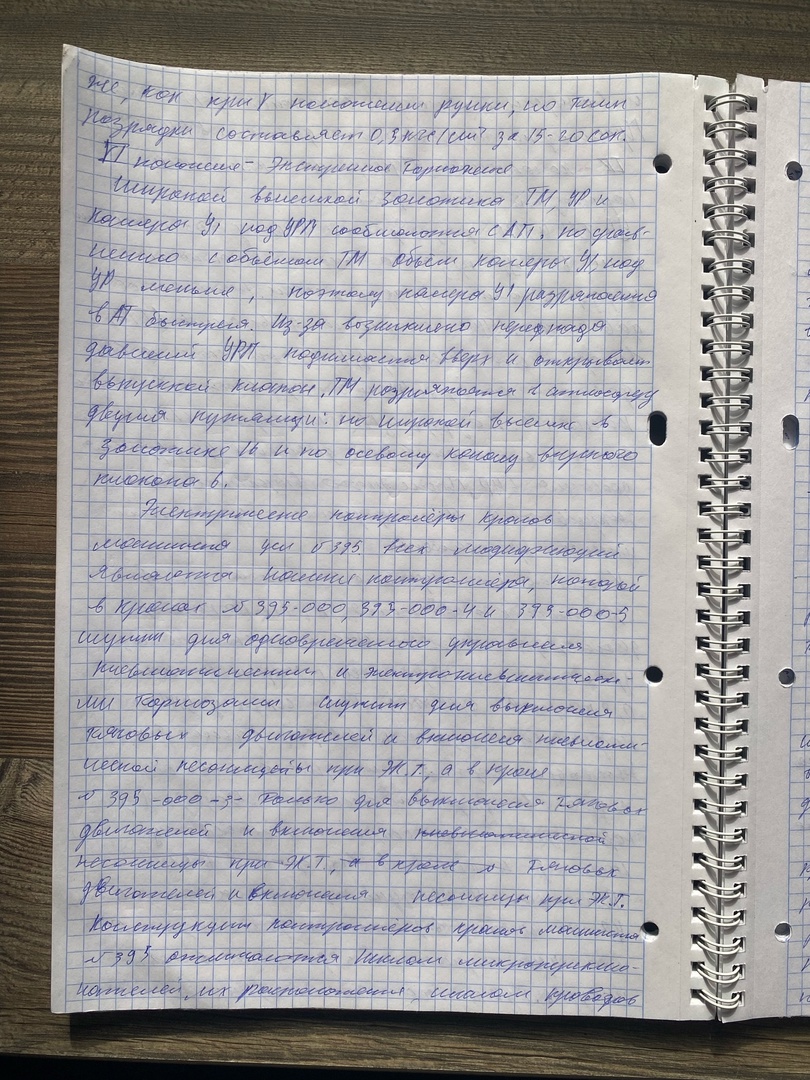 же, как при V положении ручки, но темп
разрядки составляет 0,3 кгс/см² за 15-20 сек.
VI положение - Экстренное Торможение
Широкой выемкой золотника ТМ, УР и
камера У1 над УРП сообщаются с АТ. по срав-
нению с объёмом ТМ объём камеры У1, над
УР меньше, поэтому камера У1 разряжается
в АТ быстрея. Из-за возникшего перепада
давлений УРП поднимается вверх и открывает
выпускной клапан. ТМ разряжается в атмосферу
двумя путями: по широкой выемке в
золотнике 16 и по осевому каналу впускного
клапана 6.
Электрические контролёры кранов
машиниста усл №395 всех модификаций
являются наличие контроллера, который
в кранах №395-000, 395-000-4 и 395-000-5
служит для одновременного управления
пневматическими и электропневматически-
ми тормозами служит для выключения
тяговых двигателей и включения пневмати-
ческой песочницы при Э.Т., а в кране
№ 395-000-3- только для выключения тяговых
двигателей и включения пневматической
песочницы при Э.Т., а в кране № тяговых
двигателей и включения песочницы при Э.Т.
Конструкции контроллеров кранов машиниста
№395 отличаются числом микропереклю-
чателей, их расположения, числом проводов